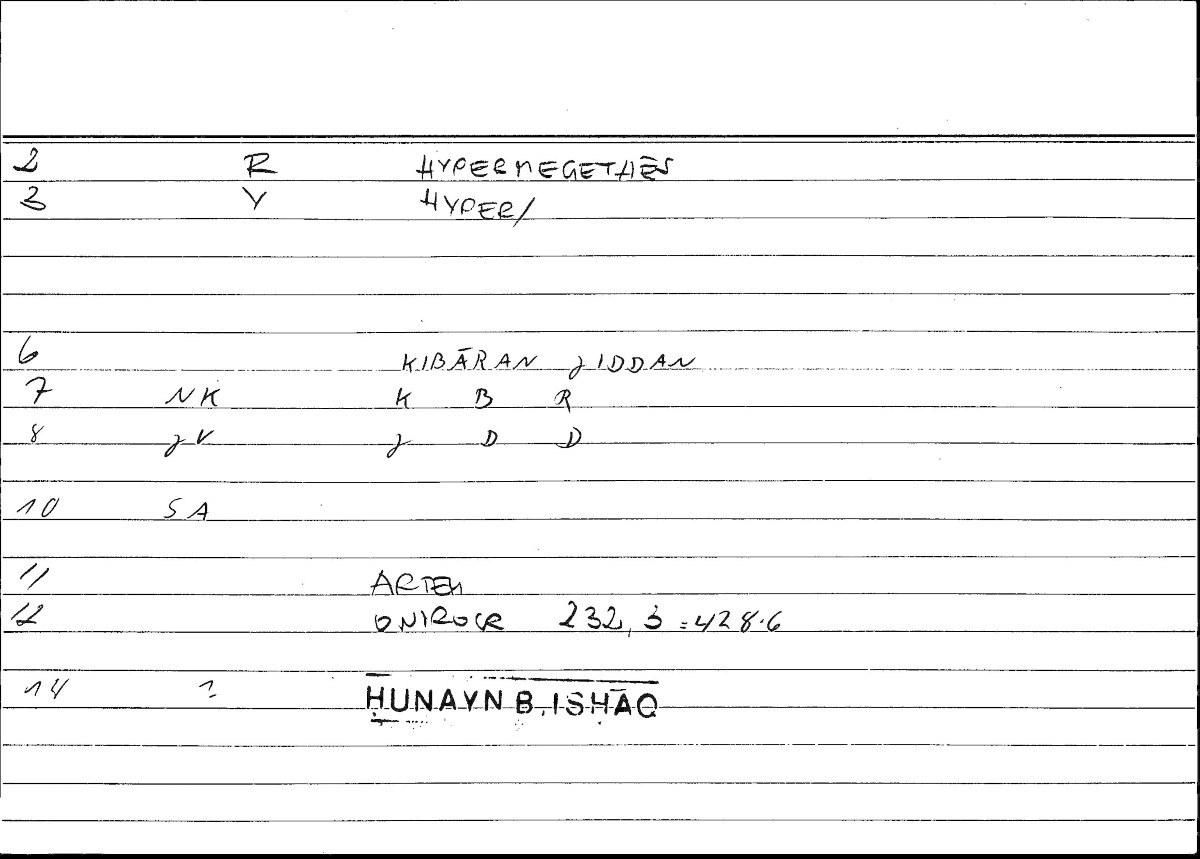 2 R HYPERMEGETHĒS
3 Y HYPER/
6 KIBĀRAN JIDDAN
7 NK K B R
8 JV J D D
10 SA
11 ARTEM
12 ONIROCR 232,3=428.6
14 ? ḤUNAYN B. ISḤĀQ